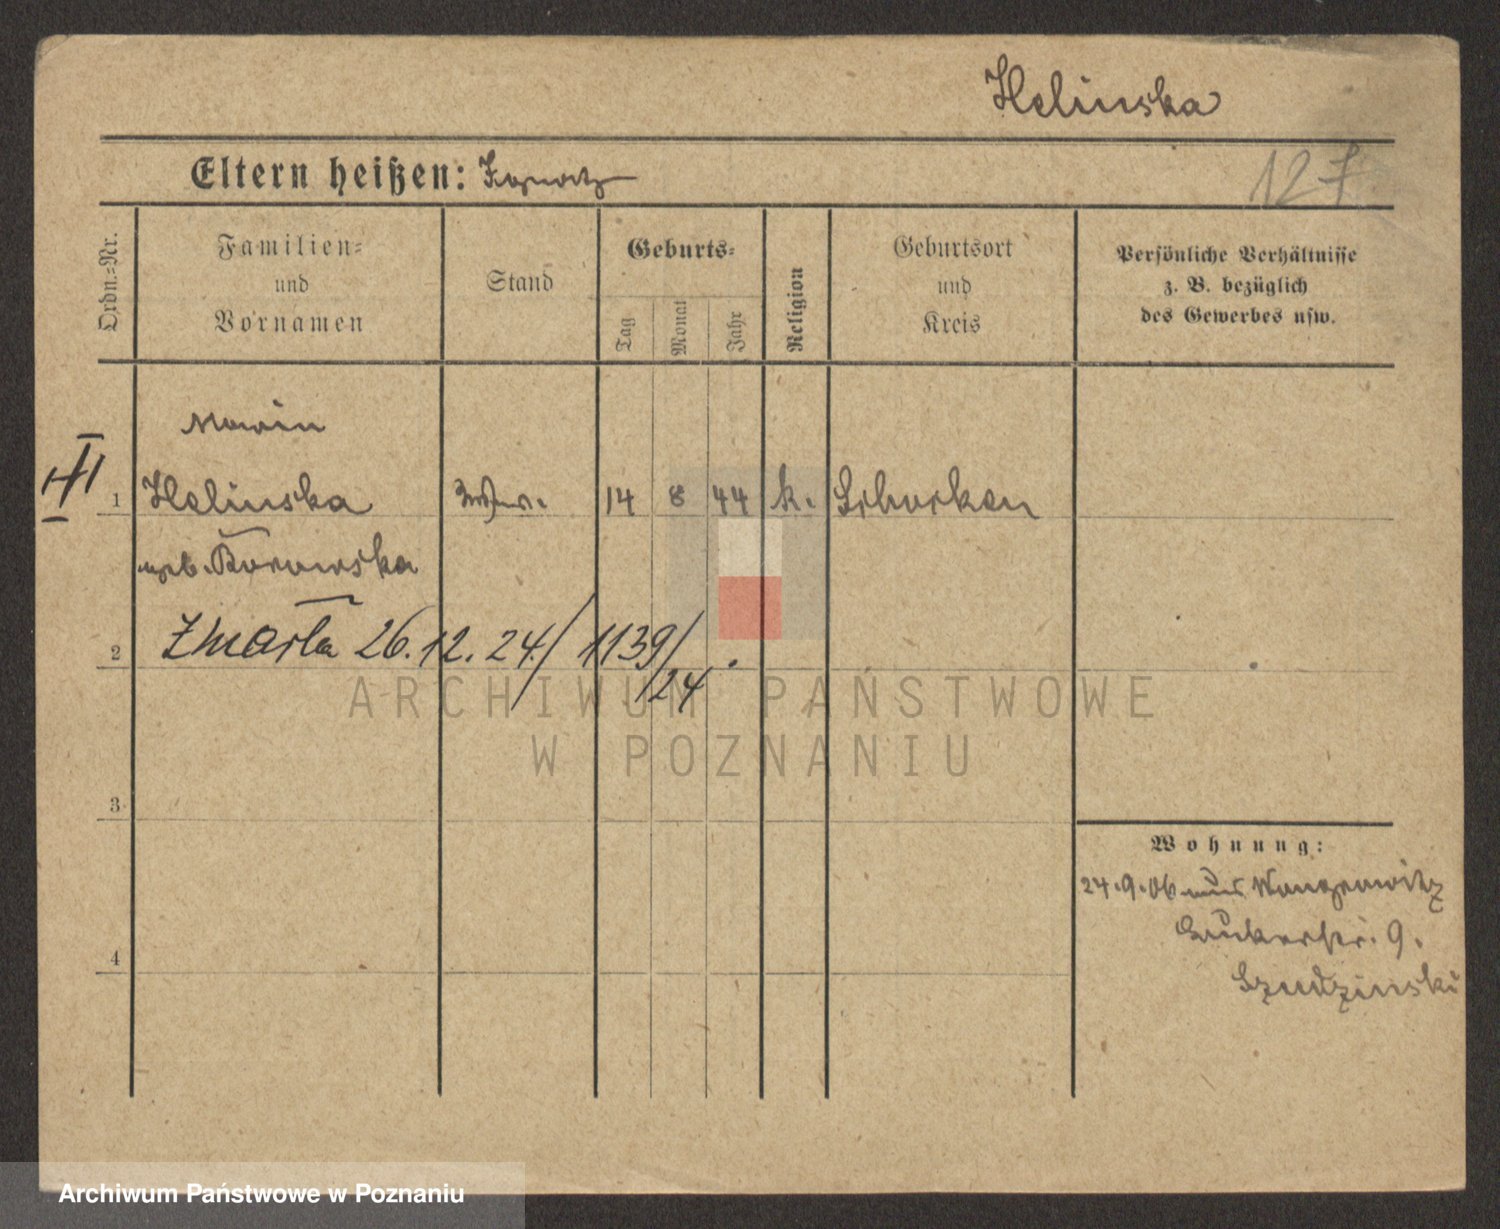 Helinska
Eltern heißen: Ignatz
127
Ordn.=Nr.
Familien=
und
Vornamen
Stand
Geburts=
Tag
Monat
Jahr
Religion
Geburtsort
und
Kreis
Persönliche Verhältnisse
z. B. bezüglich
des Gewerbes usw.
1
Helinska
14 8 44 k.
Schocken
geb. Borowska
2
Zmarła 26.12.24./ 1139/
/24
ARCHIWUM PAŃSTWOWE
W POZNANIU
3
4
Wohnung:
24.9.06 aus Wongrowitz
9.
Szudzinski
Archiwum Państwowe w Poznaniu